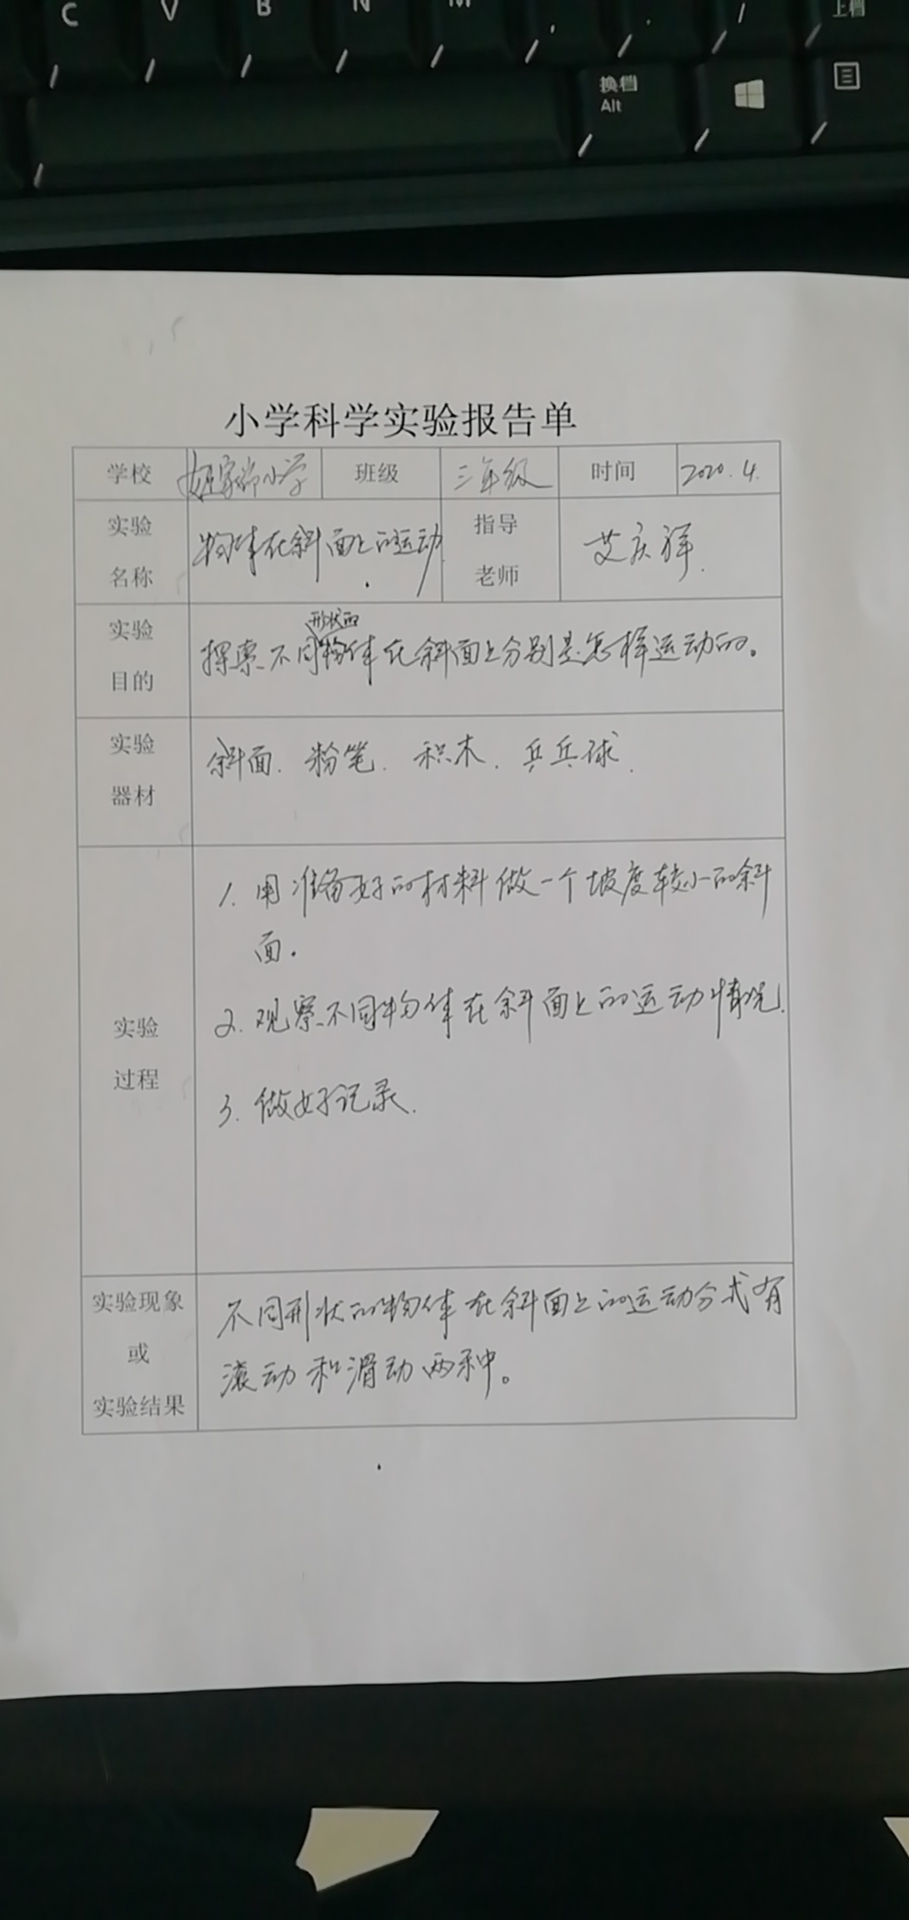 C V B N M
/
上档
换档
Alt
小学科学实验报告单
学校 姬家坊小学 班级 三年级 时间 2020.4.
实验
名称
物体在斜面上的运动
指导
老师
艾庆祥.
实验
目的
形状的
探索不同物体在斜面上分别是怎样运动的。
实验
器材
斜面. 粉笔. 积木. 乒乓球.
实验
过程
1. 用准备好的材料做一个坡度较小的斜
面.
2. 观察不同物体在斜面上的运动情况.
3. 做好记录.
实验现象
或
实验结果
不同形状的物体在斜面上的运动方式有
滚动和滑动两种。